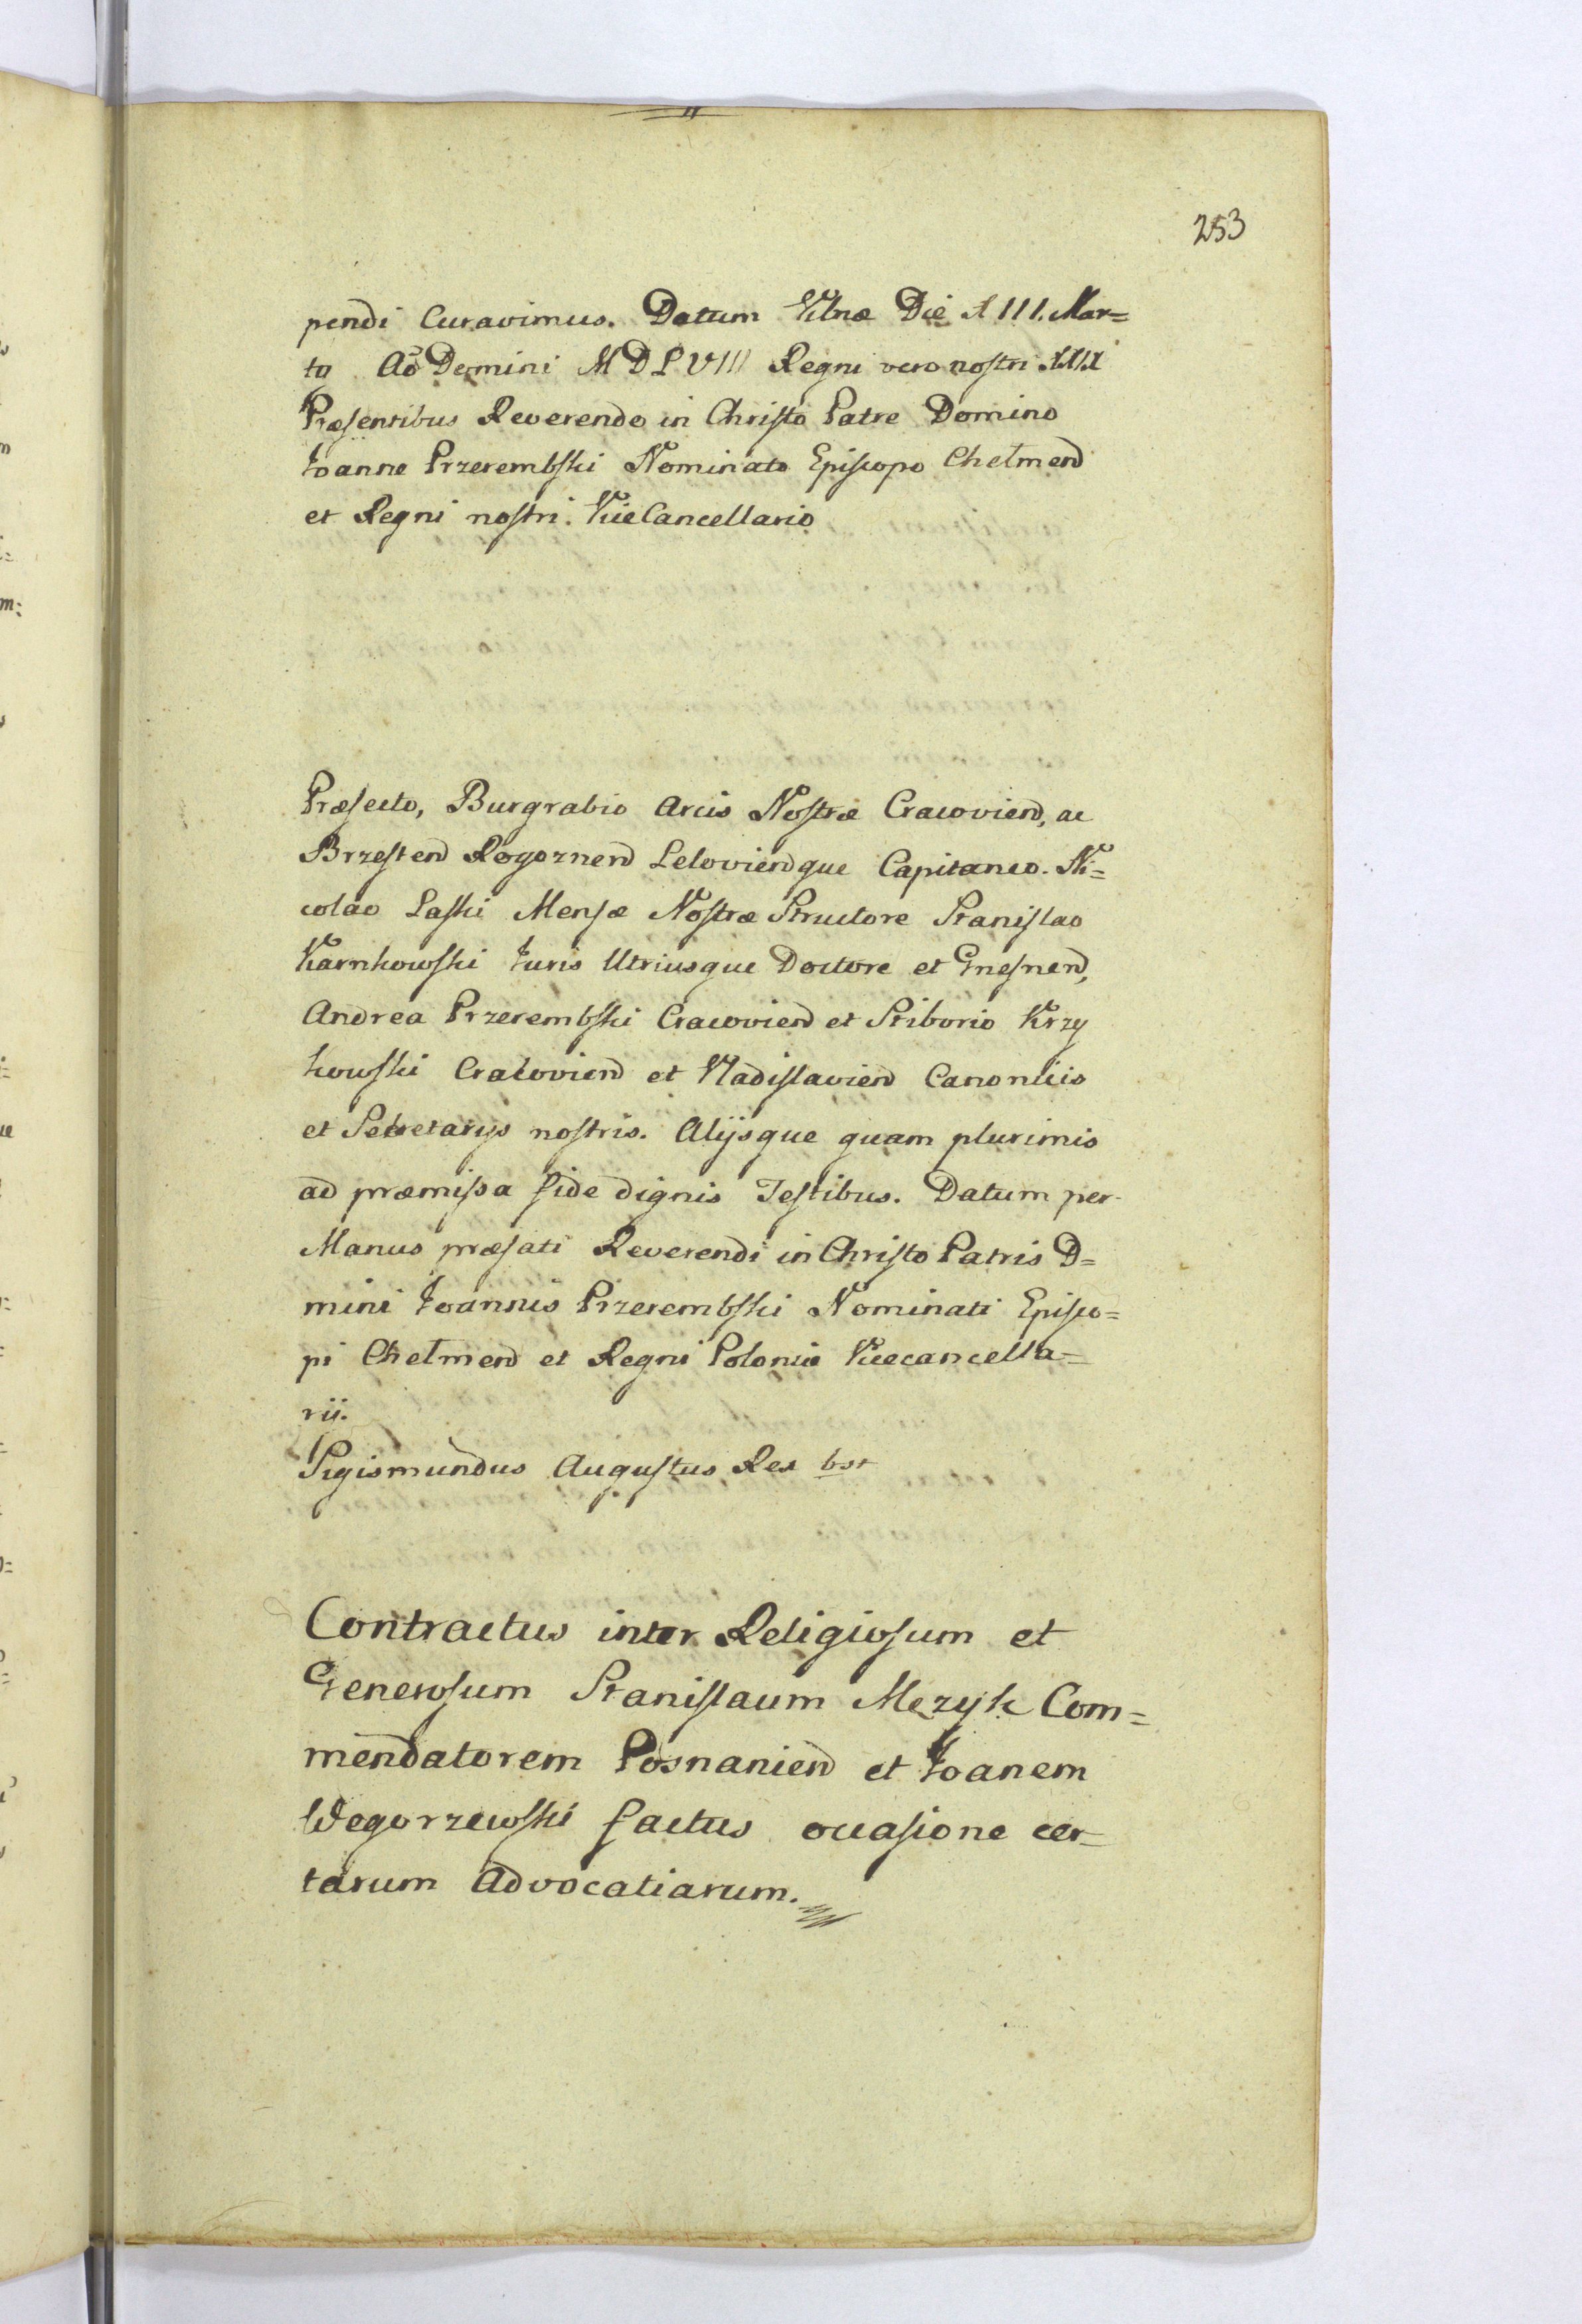 253
pendi Curavimus. Datum Vilnæ Die XIII. Mar=
tii Aō Domini MDLVIII Regni vero nostri XXIX
Præsentibus Reverendo in Christo Patre Domino
Joanne Przerembski Nominato Episcopo Chelmen̄
et Regni nostri. ViceCancellario
Præfecto, Burgrabio Arcis Nostræ Cracovien̄, ac
Brzesten̄ Rogoznen̄ Lelovien̄que Capitaneo. Ni=
colao Laski Mensæ Nostræ Structore Stanislao
Karnkowski Juris Utriusque Doctore et Gnesnen̄,
Andrea Przerembski Cracovien̄ et Stiborio Krzy
kowski Cracovien̄ et Vladislavien̄ Canonicis
et Secretarys nostris. Alijsque quam plurimis
ad præmissa fide dignis Testibus. Datum per
Manus præfati Reverendi in Christo Patris D=
mini Joannis Przerembski Nominati Episco=
pi Chelmen̄ et Regni Poloniæ Vicecancella=
rii.
Sigismundus Augustus Rex bst
Contractus inter Religiosum et
Generosum Stanislaum Mezyk Com=
mendatorem Posnanien̄ et Joanem
Wegorzewski factus occasione cer=
tarum Advocatiarum.